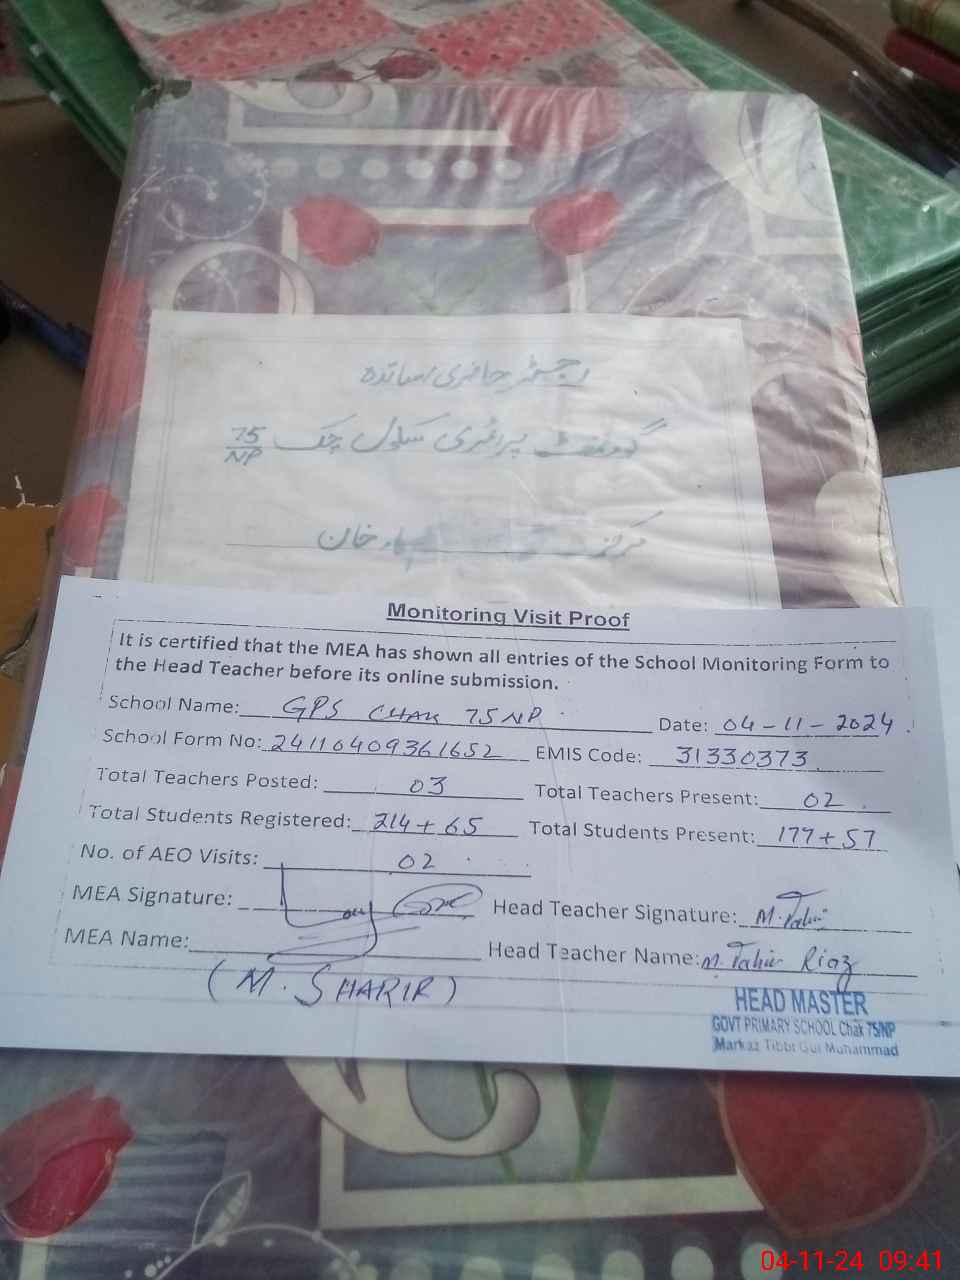 رجسٹر حاضری اساتذہ
گورنمنٹ پرائمری سکول چک 75/NP
مرکز خان
Monitoring Visit Proof
It is certified that the MEA has shown all entries of the School Monitoring Form to
the Head Teacher before its online submission.
School Name: GPS CHAK 75NP Date: 04-11-2024
School Form No: 24110409361652 EMIS Code: 31330373
Total Teachers Posted: 03 Total Teachers Present: 02
Total Students Registered: 214+65 Total Students Present: 177+57
No. of AEO Visits: 02
MEA Signature: Head Teacher Signature: M. Tahir
MEA Name: Head Teacher Name: M. Tahir Riaz
(M. SHARIR)
HEAD MASTER
GOVT PRIMARY SCHOOL Chak 75/NP
Markaz Tibbi Gul Muhammad
04-11-24 09:41